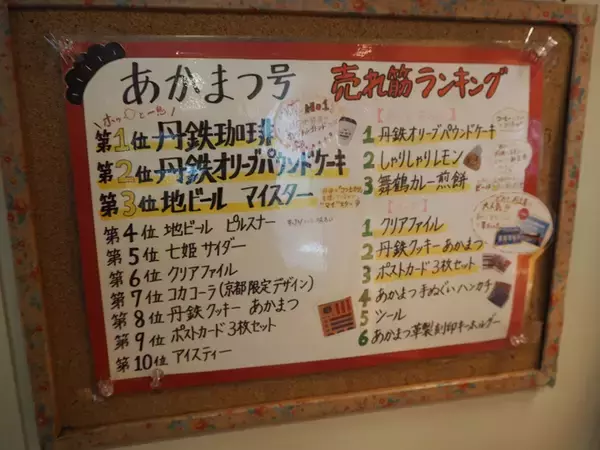 あかまつ号 売れ筋ランキング
ホッと一息
第1位 丹鉄珈琲
第2位 丹鉄オリーブパウンドケーキ
第3位 地ビール マイスター
第4位 地ビール ピルスナー
第5位 七姫サイダー
第6位 クリアファイル
第7位 コカコーラ(京都限定デザイン)
第8位 丹鉄クッキー あかまつ
第9位 ポストカード3枚セット
第10位 アイスティー
No.1
1 丹鉄オリーブパウンドケーキ
2 しゃりしゃりレモン
3 舞鶴カレー煎餅
1 クリアファイル
2 丹鉄クッキー あかまつ
3 ポストカード3枚セット
4 あかまつ手ぬぐいハンカチ
5 ツール
6 あかまつ革製刻印キーホルダー